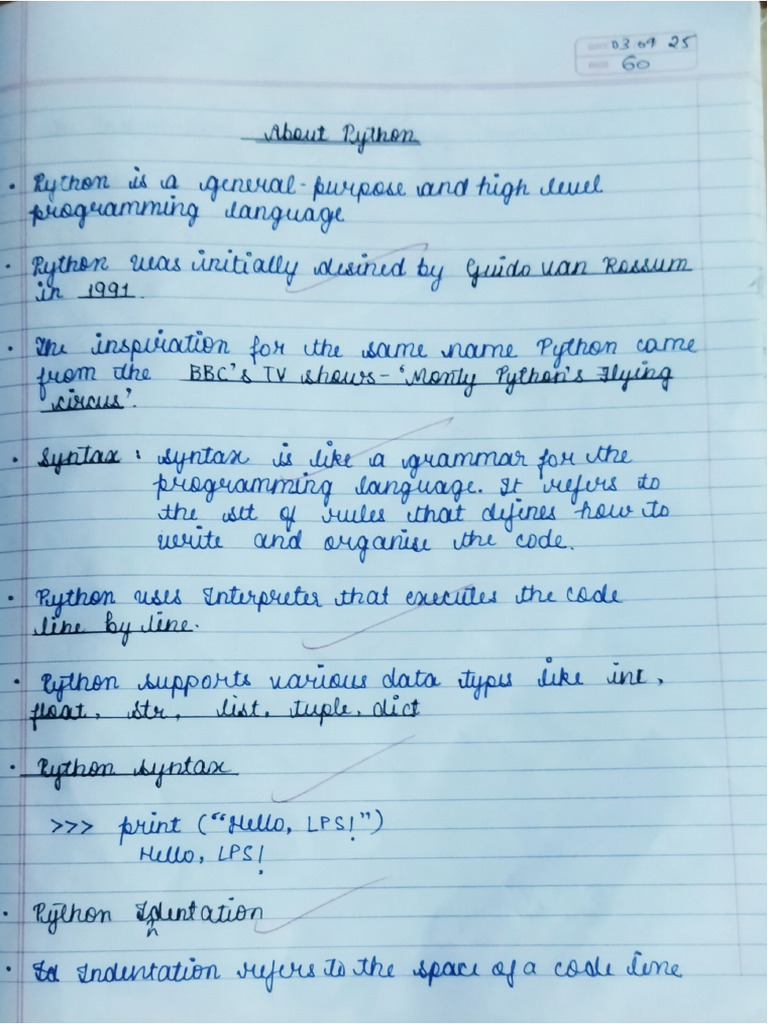 03 09 25
60
About Python
• Python is a general-purpose and high level
programming language
• Python was initially desined by Guido van Rossum
in 1991.
• The inspiration for the same name Python came
from the BBC's TV shows - 'Monty Python's Flying
circus'.
• Syntax : Syntax is like a grammar for the
programming language. It refers to
the set of rules that defines how to
write and organise the code.
• Python uses Interpreter that executes the code
line by line.
• Python supports various data types like int,
float, str, list, tuple, dict
• Python syntax
>>> print ("Hello, LPS!")
Hello, LPS!
• Python Indentation
• Indentation refers to the space of a code line